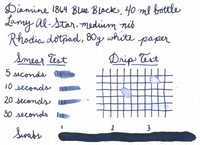 Diamine 1864 Blue Black, 40 ml bottle
Lamy Al-Star, medium nib
Rhodia dotpad, 80g white paper
Smear Test
Drip Test
5 seconds
10 seconds
20 seconds
30 seconds
Swabs
2
3